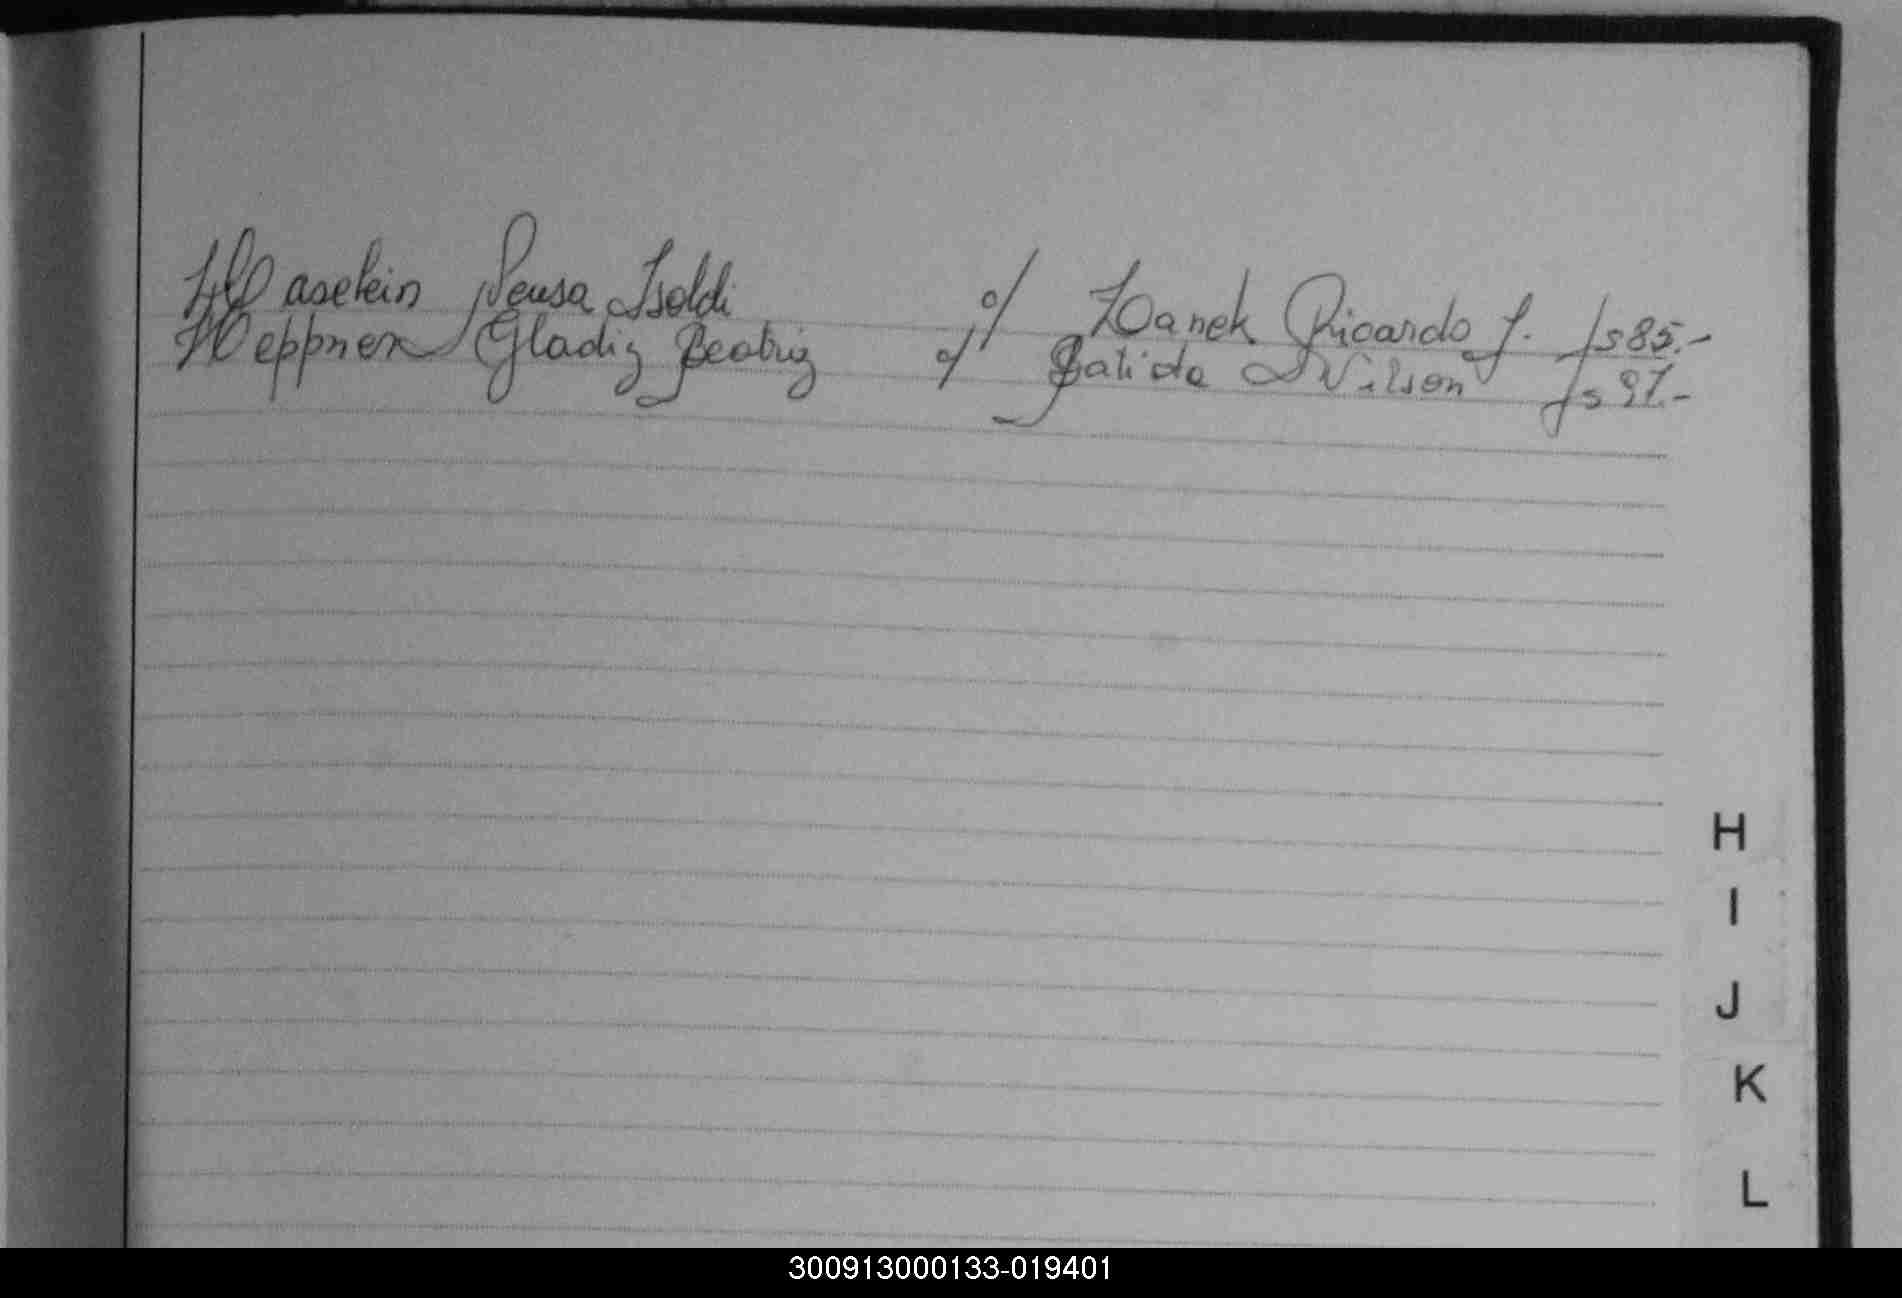 Haselein Neusa Isoldi c/ Hanek Ricardo J. fs 85.-
Heppner Gladiz Beatriz c/ Batida Nilson fs 97.-
H
I
J
K
L
300913000133-019401